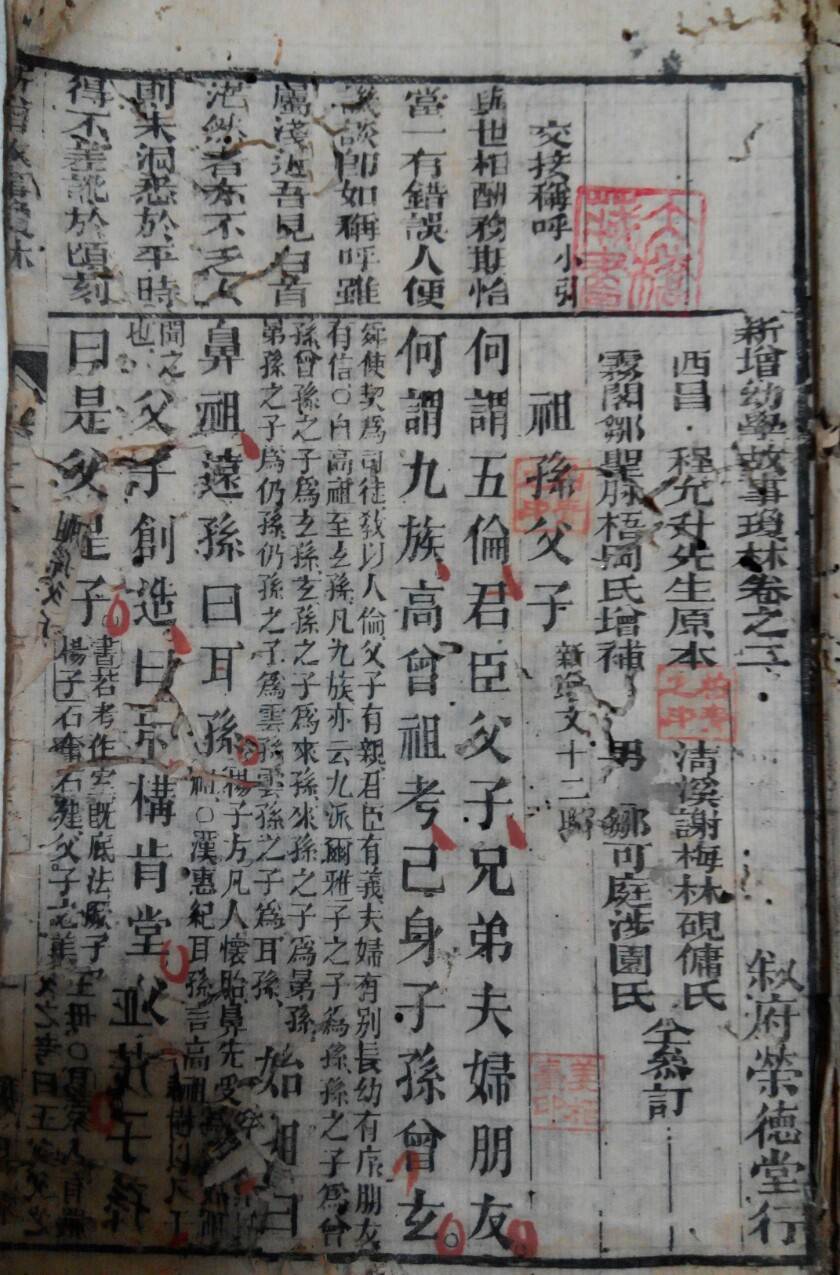 新增幼學故事瓊林卷之二
敘府榮德堂行
西昌程允升先生原本
清溪謝梅林硯傭氏
霧閣鄒聖脉梧岡氏增補
男鄒可庭涉園氏
仝叅訂
交接稱呼小引
與世相酬務期怡
當一有錯誤人便
譏談即如稱呼雖
屬淺近吾見白首
茫然者亦不乏人
則未洞悉於平時
得不差訛於頃刻
祖孫父子
新增文十二聯
何謂五倫君臣父子兄弟夫婦朋友
何謂九族高曾祖考己身子孫曾玄。
舜使契爲司徒教以人倫父子有親君臣有義夫婦有别長幼有序朋友
有信○自高祖至玄孫凡九族亦云九派爾雅子之子爲孫孫之子爲曾
孫曾孫之子爲玄孫玄孫之子爲來孫來孫之子爲晜孫
晜孫之子爲仍孫仍孫之子爲雲孫雲孫之子爲耳孫
始祖曰
鼻祖遠孫曰耳孫
楊子方凡人懷胎鼻先受
祖○漢惠紀耳孫言高祖
聞之
也
父子創造曰肯構肯堂父
子孫
曰是父是子
書若考作室既底法厥子
楊子石奮石建父子之美